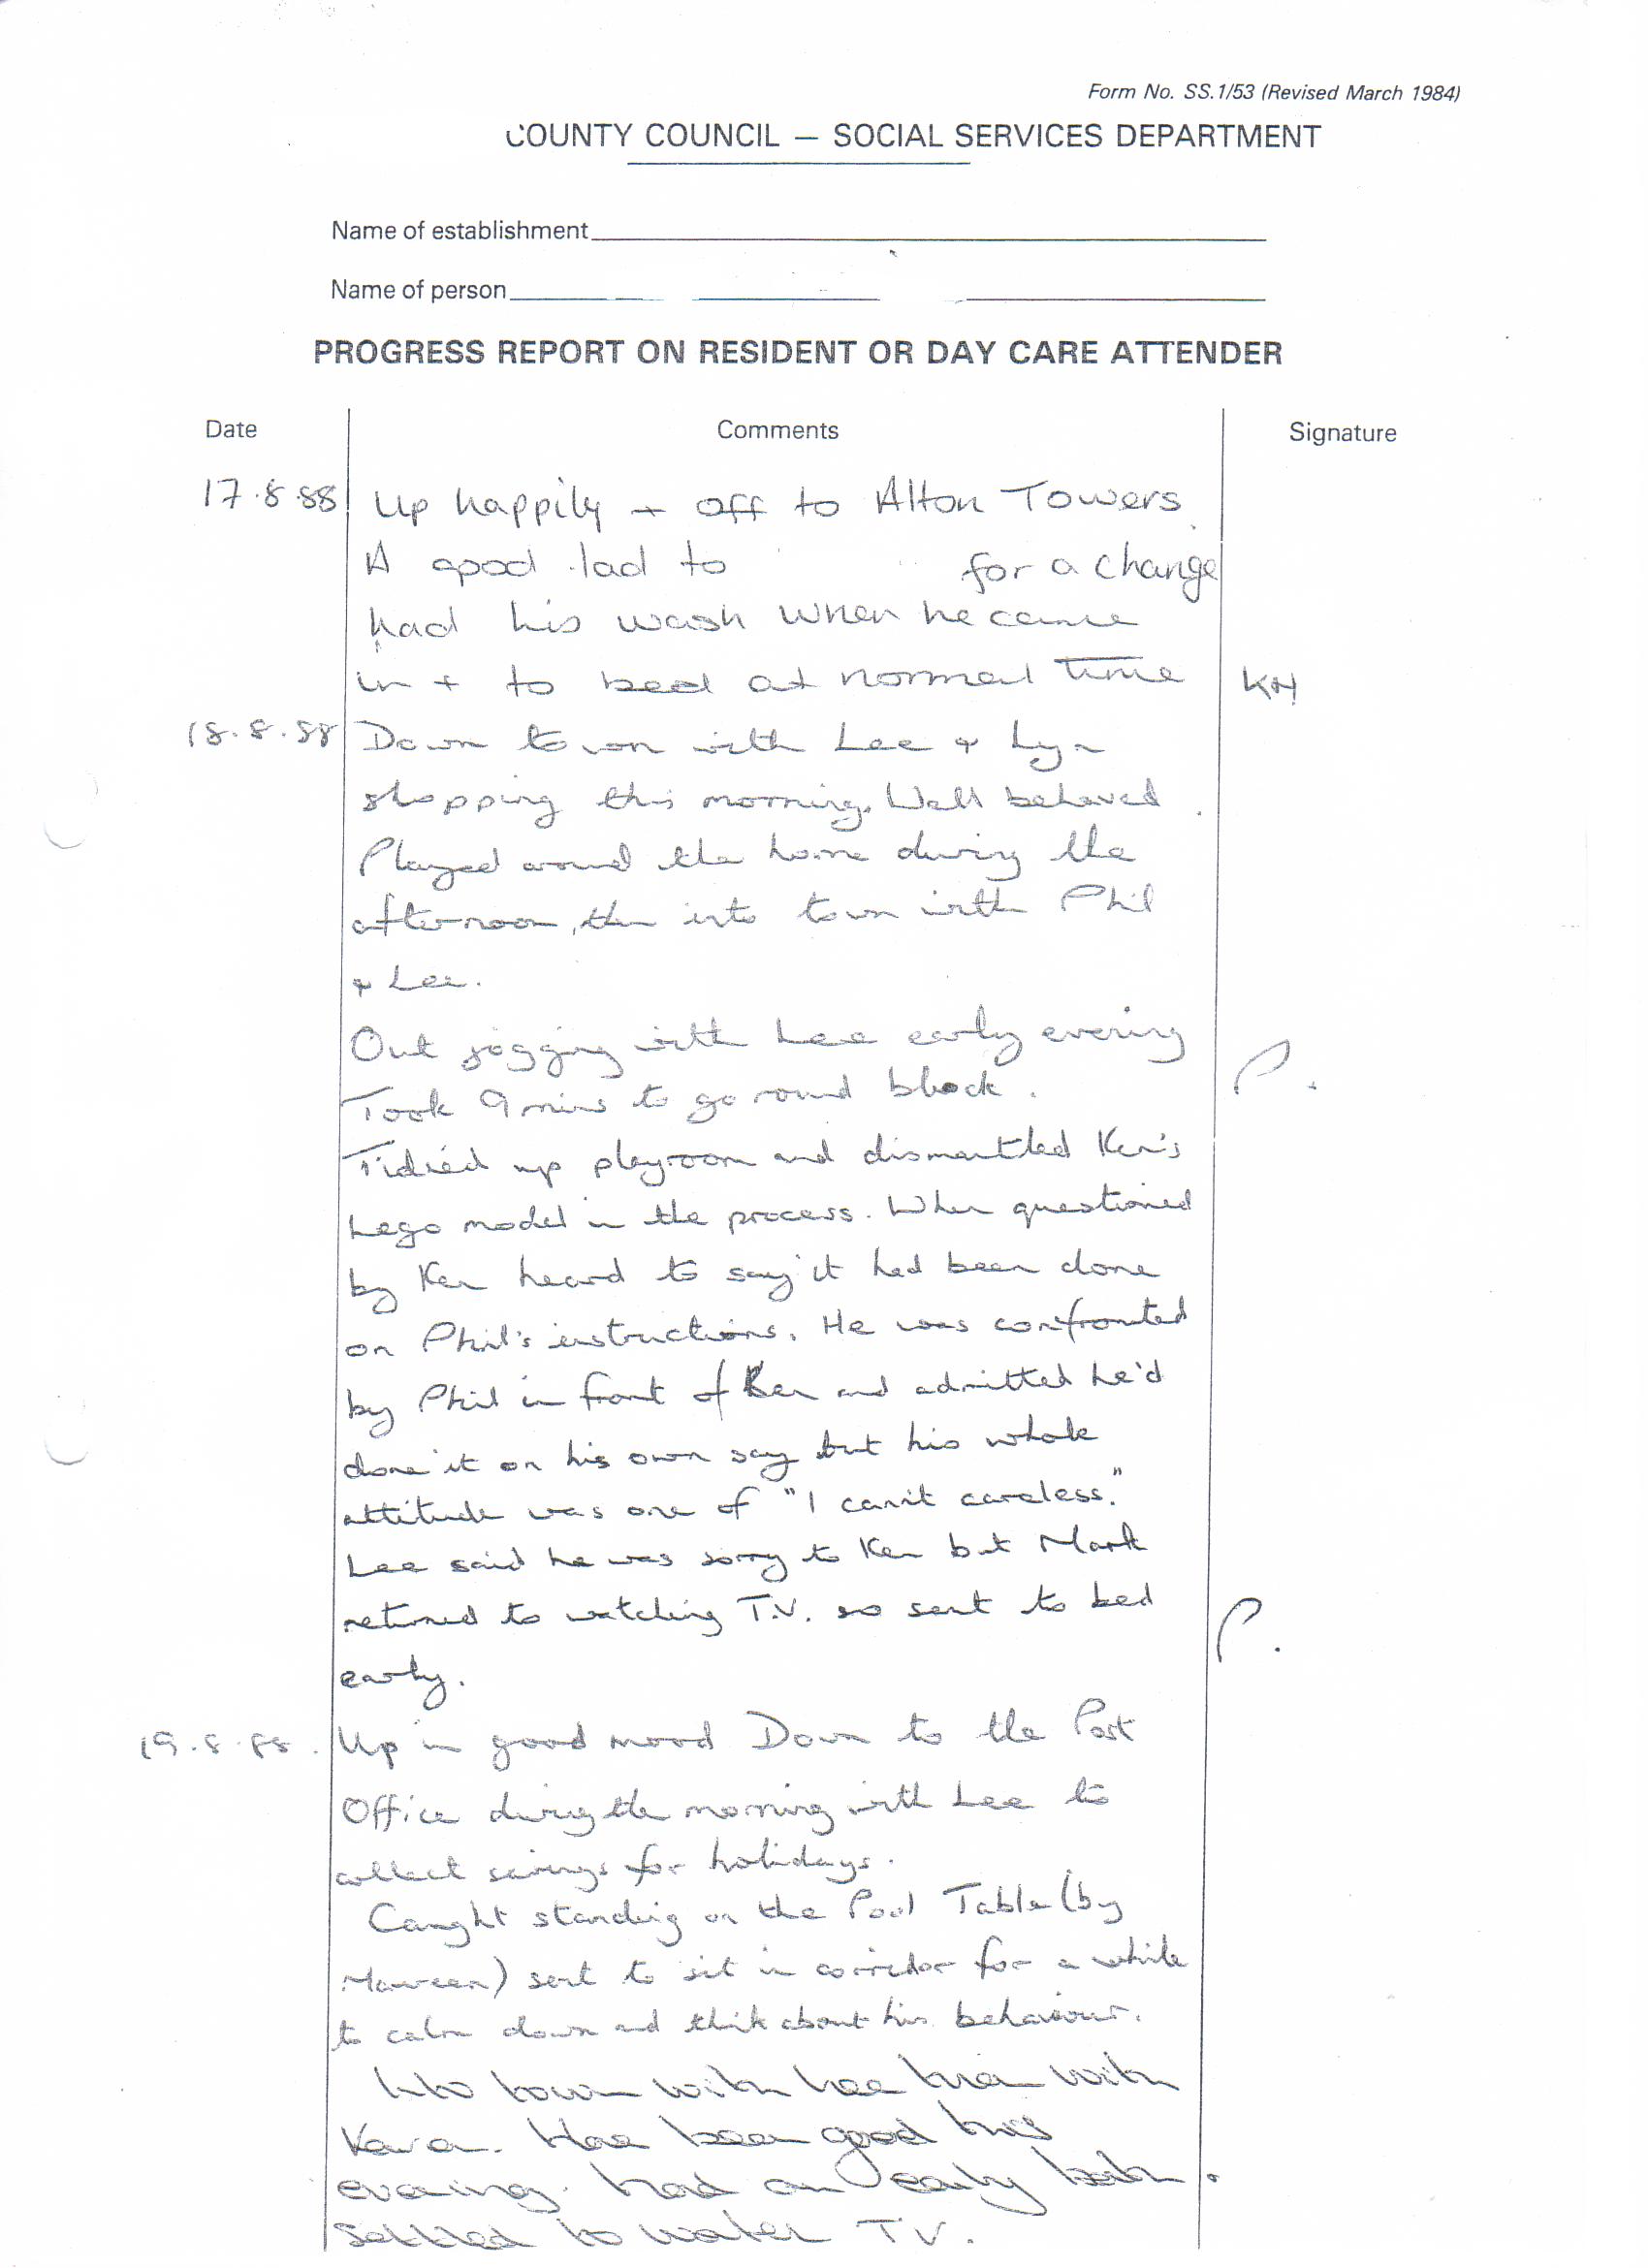 Form No. SS.1/53 (Revised March 1984)
COUNTY COUNCIL — SOCIAL SERVICES DEPARTMENT
Name of establishment
Name of person
PROGRESS REPORT ON RESIDENT OR DAY CARE ATTENDER
Date Comments Signature
17.8.88 Up happily + off to Alton Towers
A good lad to for a change
had his wash when he came
in + to bed at normal time KH
18.8.88 Down town with Lee + Lyn
shopping this morning. Well behaved.
Played around the home during the
afternoon, then into town with Phil
+ Lee.
Out jogging with Lee early evening P.
Took 9 mins to go round block.
Tidied up playroom and dismantled Ken's
Lego model in the process. When questioned
by Ken heard to say it had been done
on Phil's instructions. He was confronted
by Phil in front of Ken and admitted he'd
done it on his own say but his whole
attitude was one of "I can't careless."
Lee said he was sorry to Ken but Mark
returned to watching T.V. so sent to bed P.
early.
19.8.88. Up in good mood Down to the Post
Office during the morning with Lee to
collect savings for holidays.
Caught standing on the Pool Table (by
Maureen) sent to sit in corridor for a while
to calm down and think about his behaviour.
Into town with Lee then with
Has been good this
evening. had an early bath.
settled to watch T V.